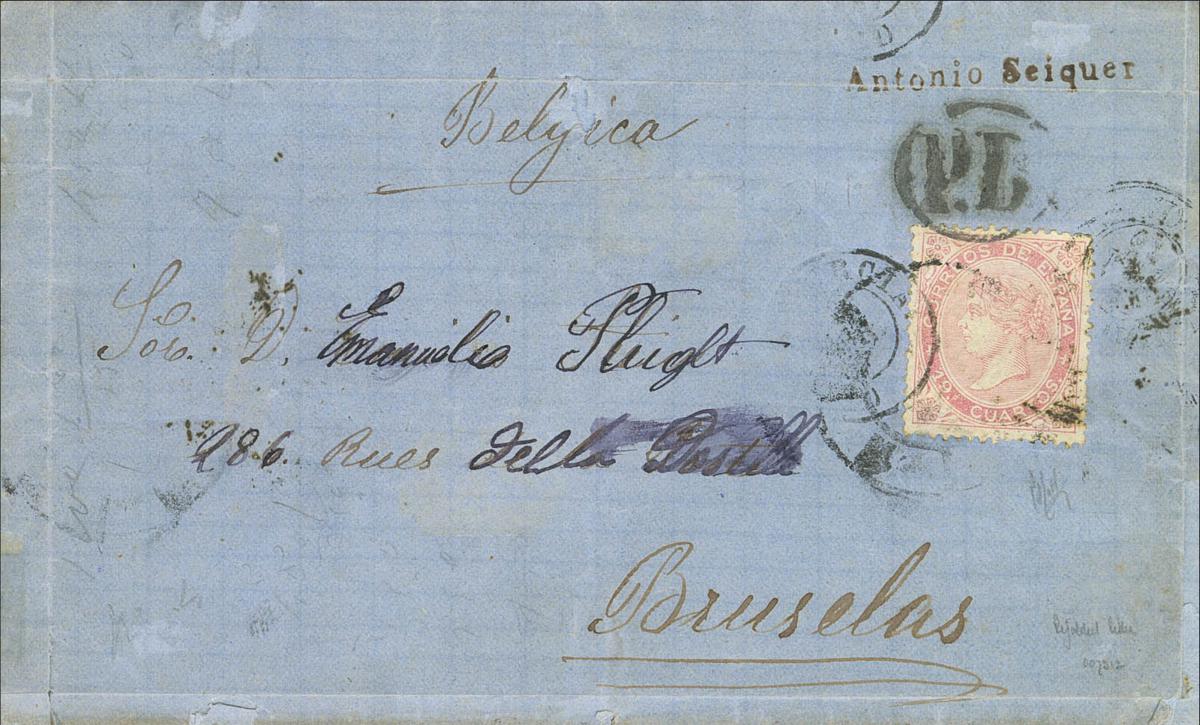 Antonio Seiquer
Belgica
P.L
CORREOS DE ESPAÑA
19 CUARTOS
Sor. D. Emanuelio Fluight
986. Rues della Postill
Bruselas
007312